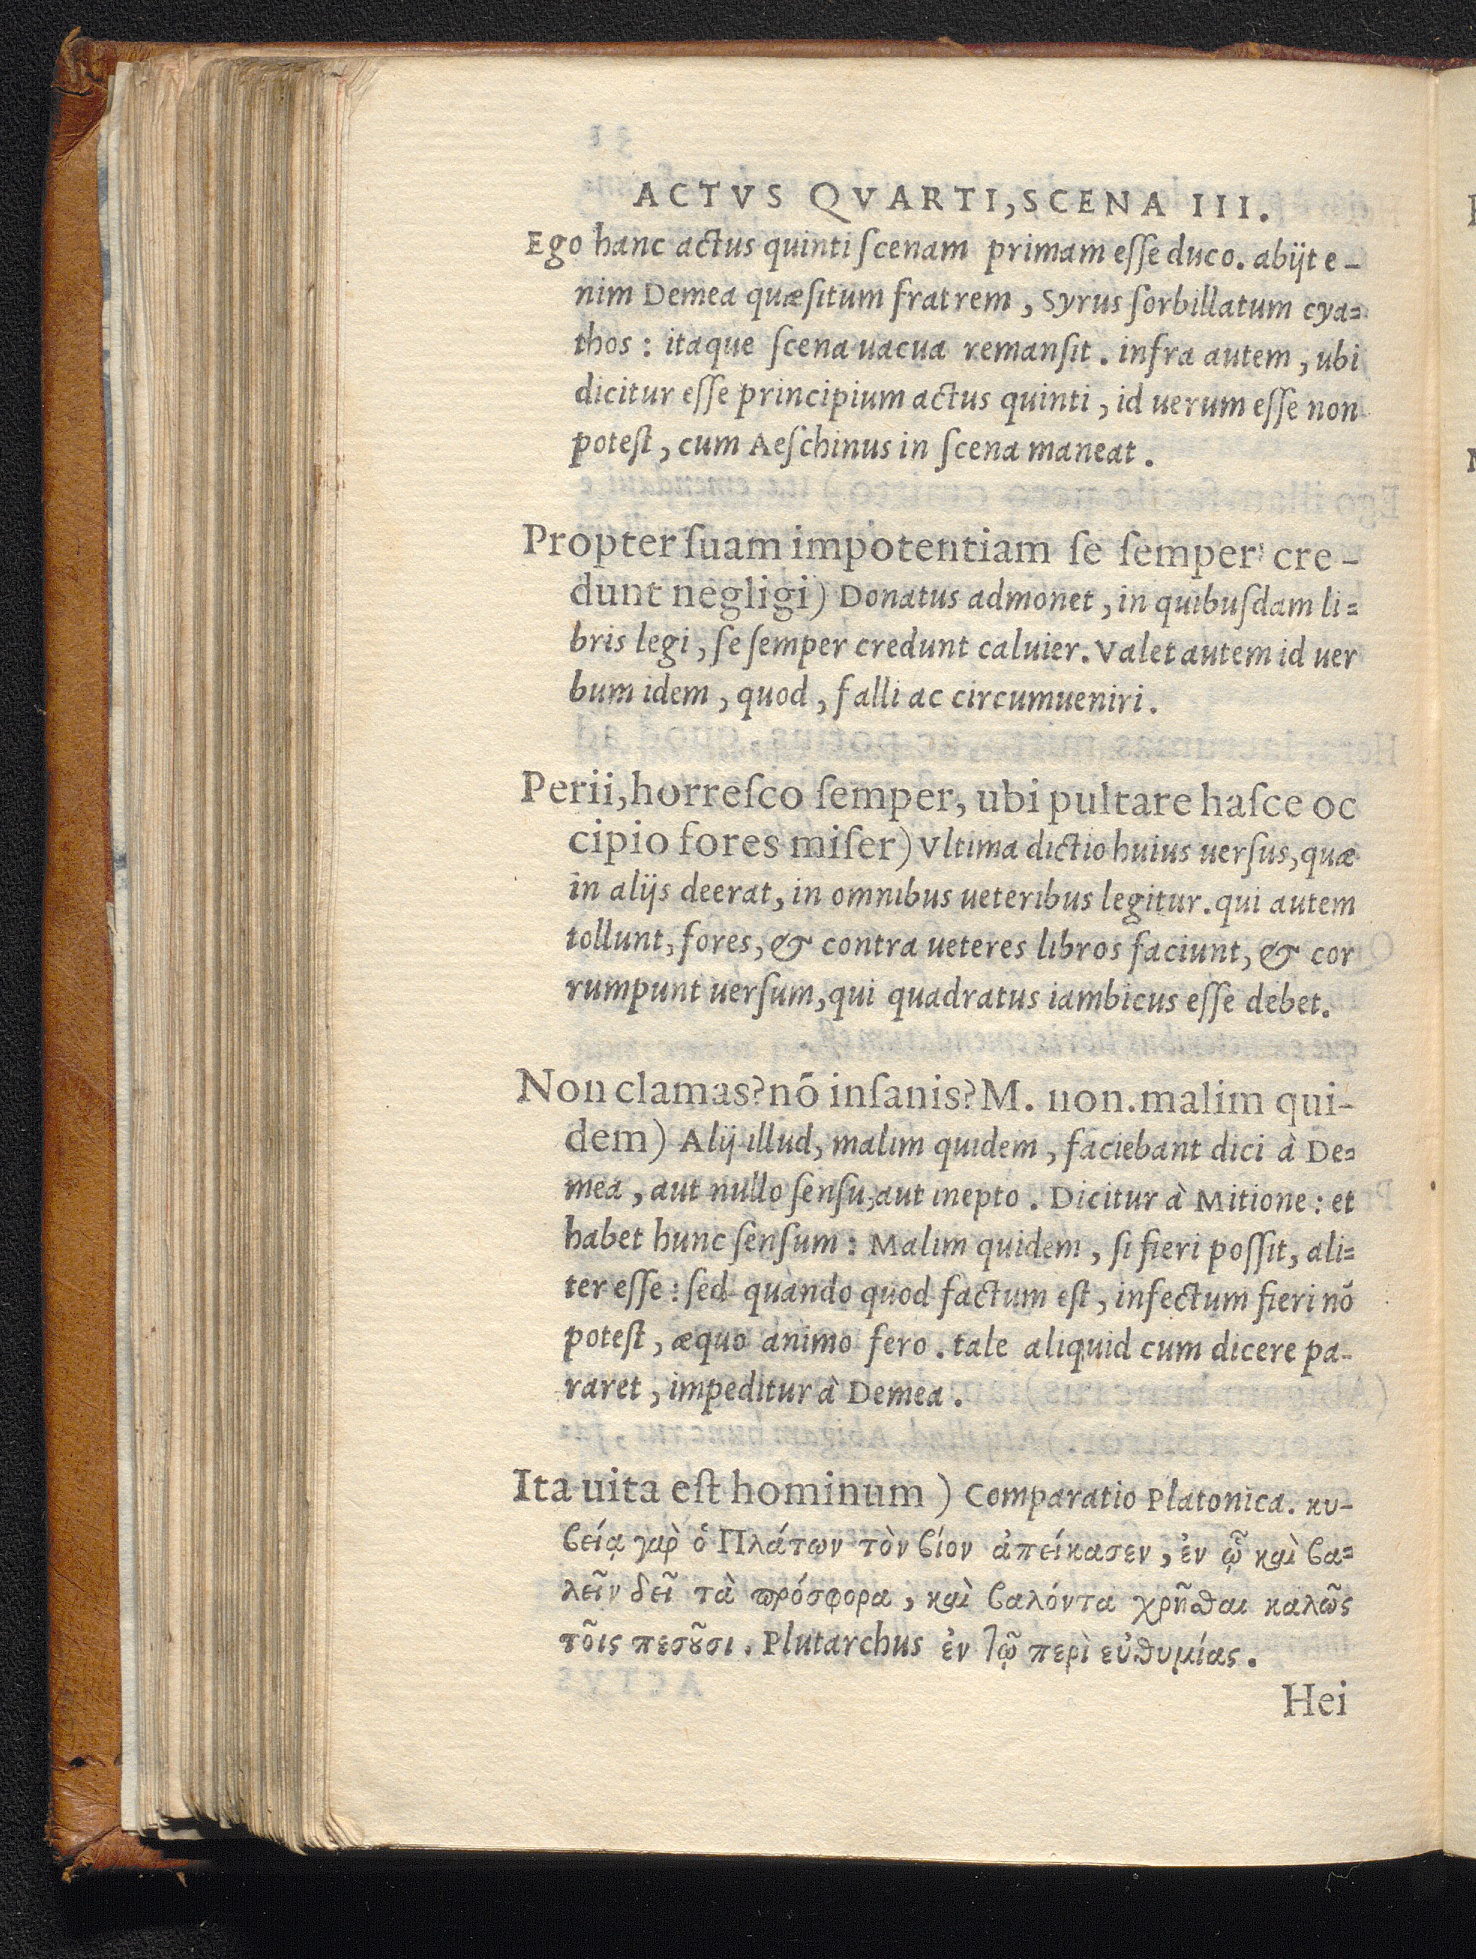 ACTVS QVARTI, SCENA III.
Ego hanc actus quinti ſcenam primam eſſe duco. abijt e-
nim Demea quæſitum fratrem, Syrus ſorbillatum cya=
thos: itaque ſcena uacua remanſit. infra autem, ubi
dicitur eſſe principium actus quinti, id uerum eſſe non
poteſt, cum Aeſchinus in ſcena maneat.
Propter ſuam impotentiam ſe ſemper cre-
dunt negligi) Donatus admonet, in quibuſdam li=
bris legi, ſe ſemper credunt caluier. Valet autem id uer
bum idem, quod, falli ac circumueniri.
Perii, horreſco ſemper, ubi pultare haſce oc
cipio fores miſer) Vltima dictio huius uerſus, quæ
in alijs deerat, in omnibus ueteribus legitur. qui autem
tollunt, fores, & contra ueteres libros faciunt, & cor
rumpunt uerſum, qui quadratus iambicus eſſe debet.
Non clamas? nō inſanis? M. non. malim qui-
dem) Alij illud, malim quidem, faciebant dici à De=
mea, aut nullo ſenſu, aut inepto. Dicitur à Mitione: et
habet hunc ſenſum: Malim quidem, ſi fieri poſſit, ali=
ter eſſe: ſed quando quod factum eſt, infectum fieri nō
poteſt, æquo animo fero. tale aliquid cum dicere pa-
raret, impeditur à Demea.
Ita uita eſt hominum) Comparatio Platonica. κυ-
βείᾳ γὰρ ὁ Πλάτων τὸν βίον ἀπείκασεν, ἐν ᾧ καὶ βα=
λεῖν δεῖ τὰ πρόσφορα, καὶ βαλόντα χρῆσθαι καλῶς
τοῖς πεσοῦσι. Plutarchus ἐν τῷ περὶ εὐθυμίας.
Hei